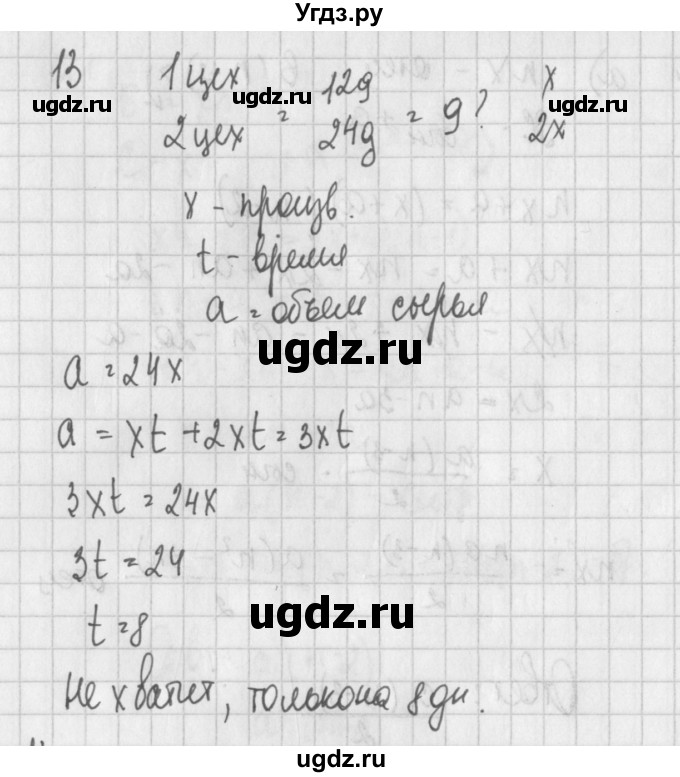 Угдз.ру
13 1 цех 12д x
ugdz.ru ugdz.ru ugdz.ru
2 цех = 24д = 9? 2x
x - произв.
t - время
a = объем сырья
ugdz.ru
a = 24x
a = xt + 2xt = 3xt
3xt = 24x
3t = 24
ugdz.ru
t = 8
Не хватит, только на 8 дн.
ugdz.ru ugdz.ru ugdz.ru
ugdz.ru